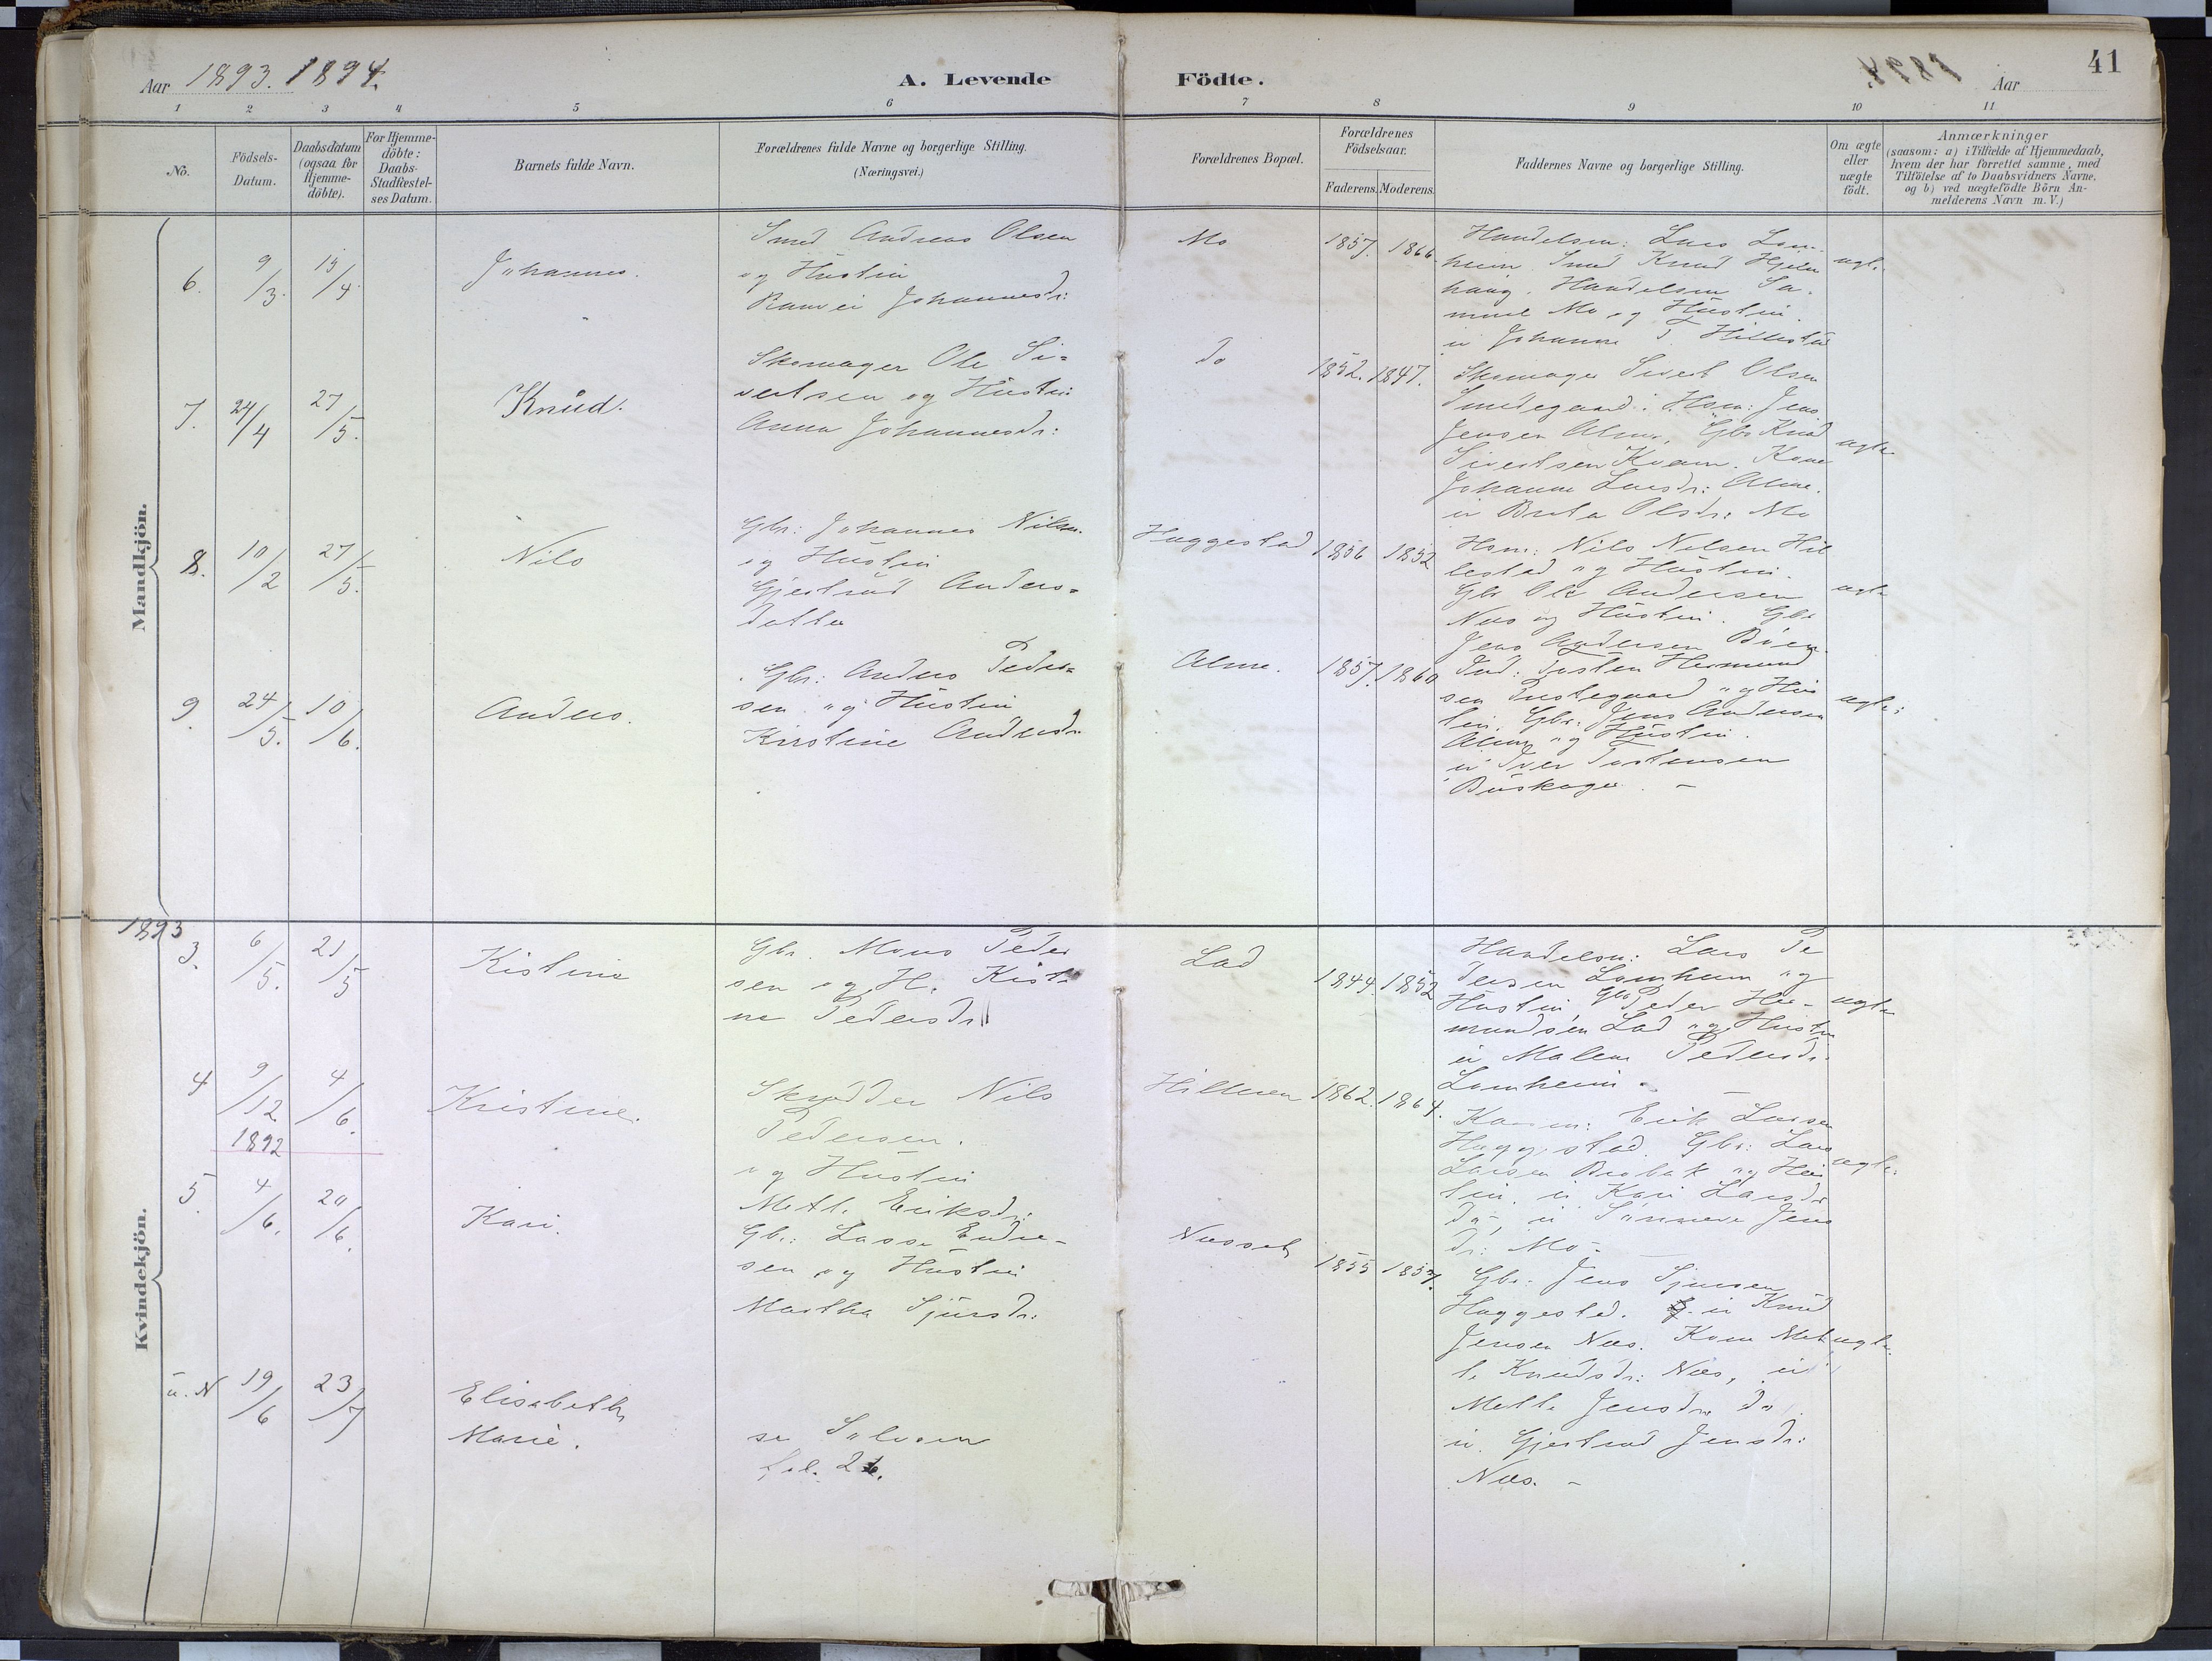 Aar 1893. 1894.
A. Levende Födte.
Aar
41
1 2 3 4 5 6 7 8 9 10 11
No.
Födsels-
Datum.
Daabsdatum
(ogsaa for
Hjemme-
döbte).
For Hjemme-
döbte:
Daabs-
Stadfæstel-
ses Datum.
Barnets fulde Navn.
Forældrenes fulde Navne og borgerlige Stilling.
(Næringsvei.)
Forældrenes Bopæl.
Forældrenes
Födselsaar.
Faderens. Moderens.
Faddernes Navne og borgerlige Stilling.
Om ægte
eller
uægte
födt.
Anmærkninger
(saasom: a) i Tilfælde af Hjemmedaab,
hvem der har forrettet samme, med
Tilföielse af to Daabsvidners Navne,
og b) ved uægtefödte Börn An-
melderens Navn m. V.)
Mandkjön.
6. 9/3. 15/4. Johannes.
Smed Andreas Olsen
og Hustru
Johannesdr:
Mo 1857. 1866.
Handelsm: Lars Lom-
heim. Smed Knud Hjelm
haug. Handelsm Sa-
muel Mo og Hustru.
u Johanne T. Hillestad
ægte
7. 24/4 27/5. Knud.
Skomager Ole Si-
vertsen og Hustru
Anna Johannesdr:
Do 1852. 1847.
Skomager Sivert Olsen
Smedegaard. Hsm: Jens
Jensen Alme. Gbr Knud
Sivertsen Kvam. Kone
Johanne Larsdr: Alme.
u Brita Olsdr: Mo
ægte
8. 10/2 27/5. Nils
Gbr: Johannes Nilsen
og Hustru
Gjertrud Anders-
datter
Haggestad 1856 1852
Hsm: Nils Nilsen Hil
lestad og Hustru.
Gbr Ole Andersen
Næs og Hustru. Gbr
Jens Andersen Böen
ægte
9. 24/5. 10/6. Anders.
Gbr: Anders Peder-
sen og Hustru
Kirstine Andersdr
Alme. 1857. 1860
Ind: Tosten Hermund
sen Prestegaard og Hus
tru. Gbr: Jens Andersen
Alme og Hustru.
u Iver Tostensen
Buskager. -
ægte:
Kvindekjön.
1893
3. 6/5. 21/5 Kistine
Gbr. Mons Peder
sen og H. Kisti
ne Pedersdr
Lad 1844. 1852
Handelsm: Lars Pe
dersen Lomheim og
Hustru Gbr Peder Her-
mundsen Lad og Hustru
u Malene Pedersdr.
Lomheim.
ægte
4 9/12 1892 4/6. Kristine.
Skrædder Nils
Pedersen.
og Hustru
Mette Eriksdr:
Hilleren 1862. 1864.
Erik Larsen
Haggestad. Gbr: Lars
Larsen og Hus
tru. u Kari Larsdr
do, u Sünneve Jens
dr: Mo -
ægte:
5. 4/6. 20/6. Kari.
Gbr: Lasse Endre-
sen og Hustru
Martha Sjursdr:
Næsset 1855 1857.
Gbr: Jens Sjursen
Haggestad. u Knud
Jensen Næs. Kone Met
te Knudsdr: Næs, u
Mette Jensdr. do
u. Gjertrud Jensdr:
Næs. -
ægte.
u. N 19/6 23/7 Elisabeth
Marie.
se Solvorn
fol. 26.